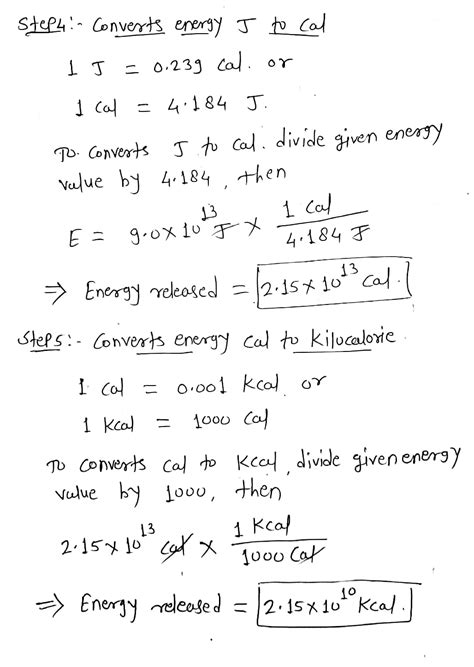 Step4:- Converts energy J to Cal
1 J = 0.239 Cal. or
1 Cal = 4.184 J.
To Converts J to Cal. divide given energy
value by 4.184, then
E = 9.0×10¹³ J × 1 Cal / 4.184 J
⇒ Energy released = 2.15×10¹³ Cal.
Step5:- Converts energy Cal to Kilocalorie
1 Cal = 0.001 Kcal or
1 Kcal = 1000 Cal
To Converts Cal to Kcal, divide given energy
value by 1000, then
2.15×10¹³ Cal × 1 Kcal / 1000 Cal
⇒ Energy released = 2.15×10¹⁰ Kcal.